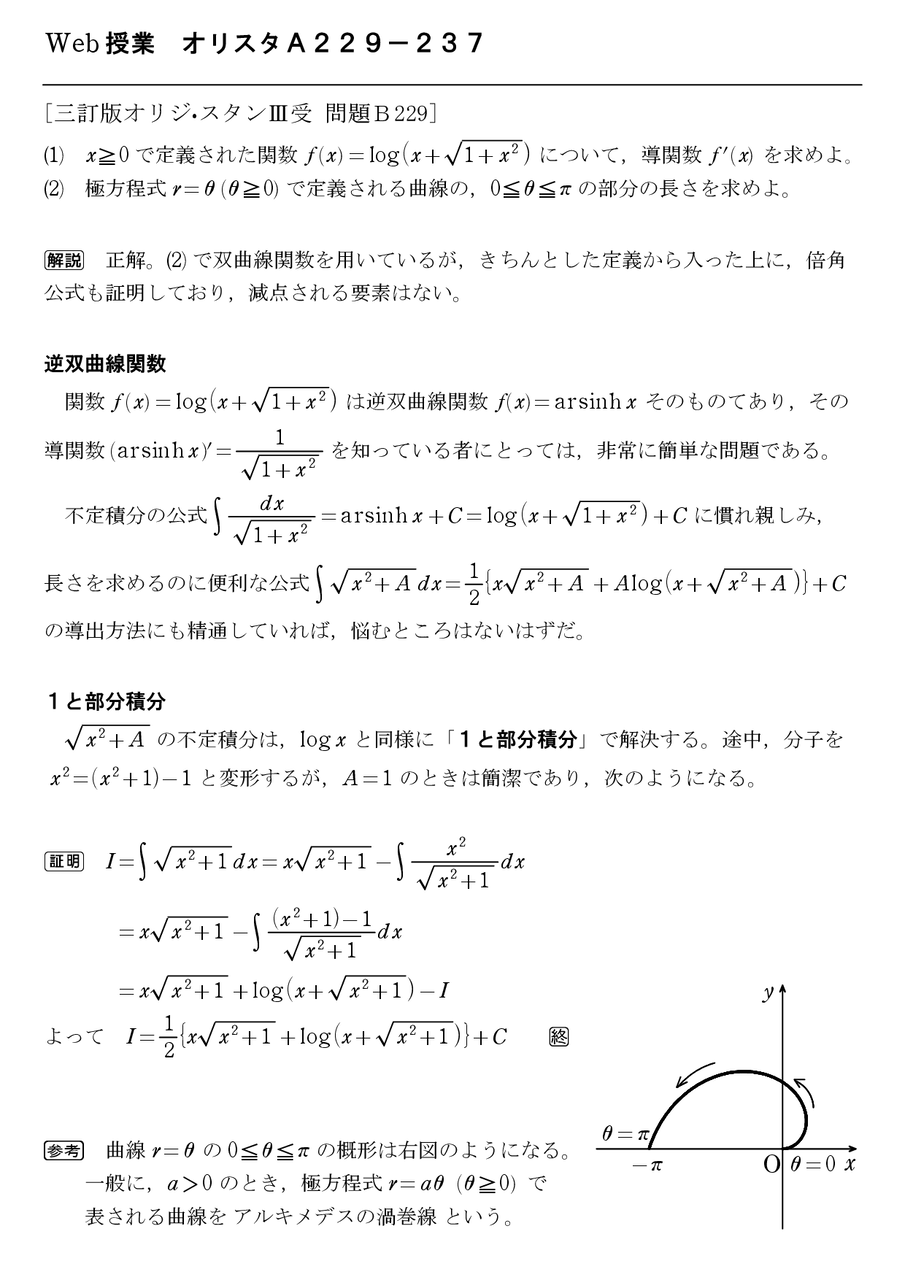 Web 授業　オリスタA229－237
[三訂版オリジ・スタンⅢ受 問題B229]
(1)　x≧0 で定義された関数 f(x)=log(x+√(1+x²)) について，導関数 f′(x) を求めよ。
(2)　極方程式 r=θ (θ≧0) で定義される曲線の，0≦θ≦π の部分の長さを求めよ。
解説　正解。(2) で双曲線関数を用いているが，きちんとした定義から入った上に，倍角
公式も証明しており，減点される要素はない。
逆双曲線関数
関数 f(x)=log(x+√(1+x²)) は逆双曲線関数 f(x)=arsinh x そのものてあり，その
導関数 (arsinh x)′=1/√(1+x²) を知っている者にとっては，非常に簡単な問題である。
不定積分の公式∫dx/√(1+x²)=arsinh x+C=log(x+√(1+x²))+C に慣れ親しみ，
長さを求めるのに便利な公式∫√(x²+A) dx=1/2{x√(x²+A)+Alog(x+√(x²+A))}+C
の導出方法にも精通していれば，悩むところはないはずだ。
１と部分積分
√(x²+A) の不定積分は，log x と同様に「１と部分積分」で解決する。途中，分子を
x²=(x²+1)−1 と変形するが，A=1 のときは簡潔であり，次のようになる。
証明　I=∫√(x²+1) dx=x√(x²+1)−∫x²/√(x²+1) dx
=x√(x²+1)−∫((x²+1)−1)/√(x²+1) dx
=x√(x²+1)+log(x+√(x²+1))−I
よって　I=1/2{x√(x²+1)+log(x+√(x²+1))}+C　終
参考　曲線 r=θ の 0≦θ≦π の概形は右図のようになる。
一般に，a＞0 のとき，極方程式 r=aθ (θ≧0) で
表される曲線を アルキメデスの渦巻線 という。
y
θ=π
−π
O
θ=0
x